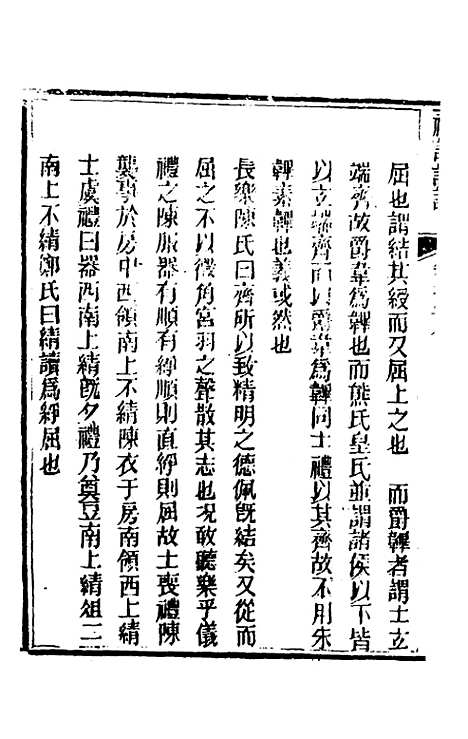 屈也謂結其綬而又屈上之也　而爵韠者謂士玄
端齊故爵韋爲韠也而熊氏皇氏並謂諸侯以下皆
以玄端齊而以爵韋爲韠同士禮以其齊故不用朱
韠素韠也義或然也
長樂陳氏曰齊所以致精明之德佩旣結矣又從而
屈之不以徵角宮羽之聲散其志也况敢聽樂乎儀
禮之陳服器有順有綪順則直綪則屈故士喪禮陳
襲事於房中西領南上不綪陳衣于房南領西上綪
士虞禮曰器西南上綪旣夕禮乃奠豆南上綪俎二
南上不綪鄭氏曰綪讀爲綪屈也